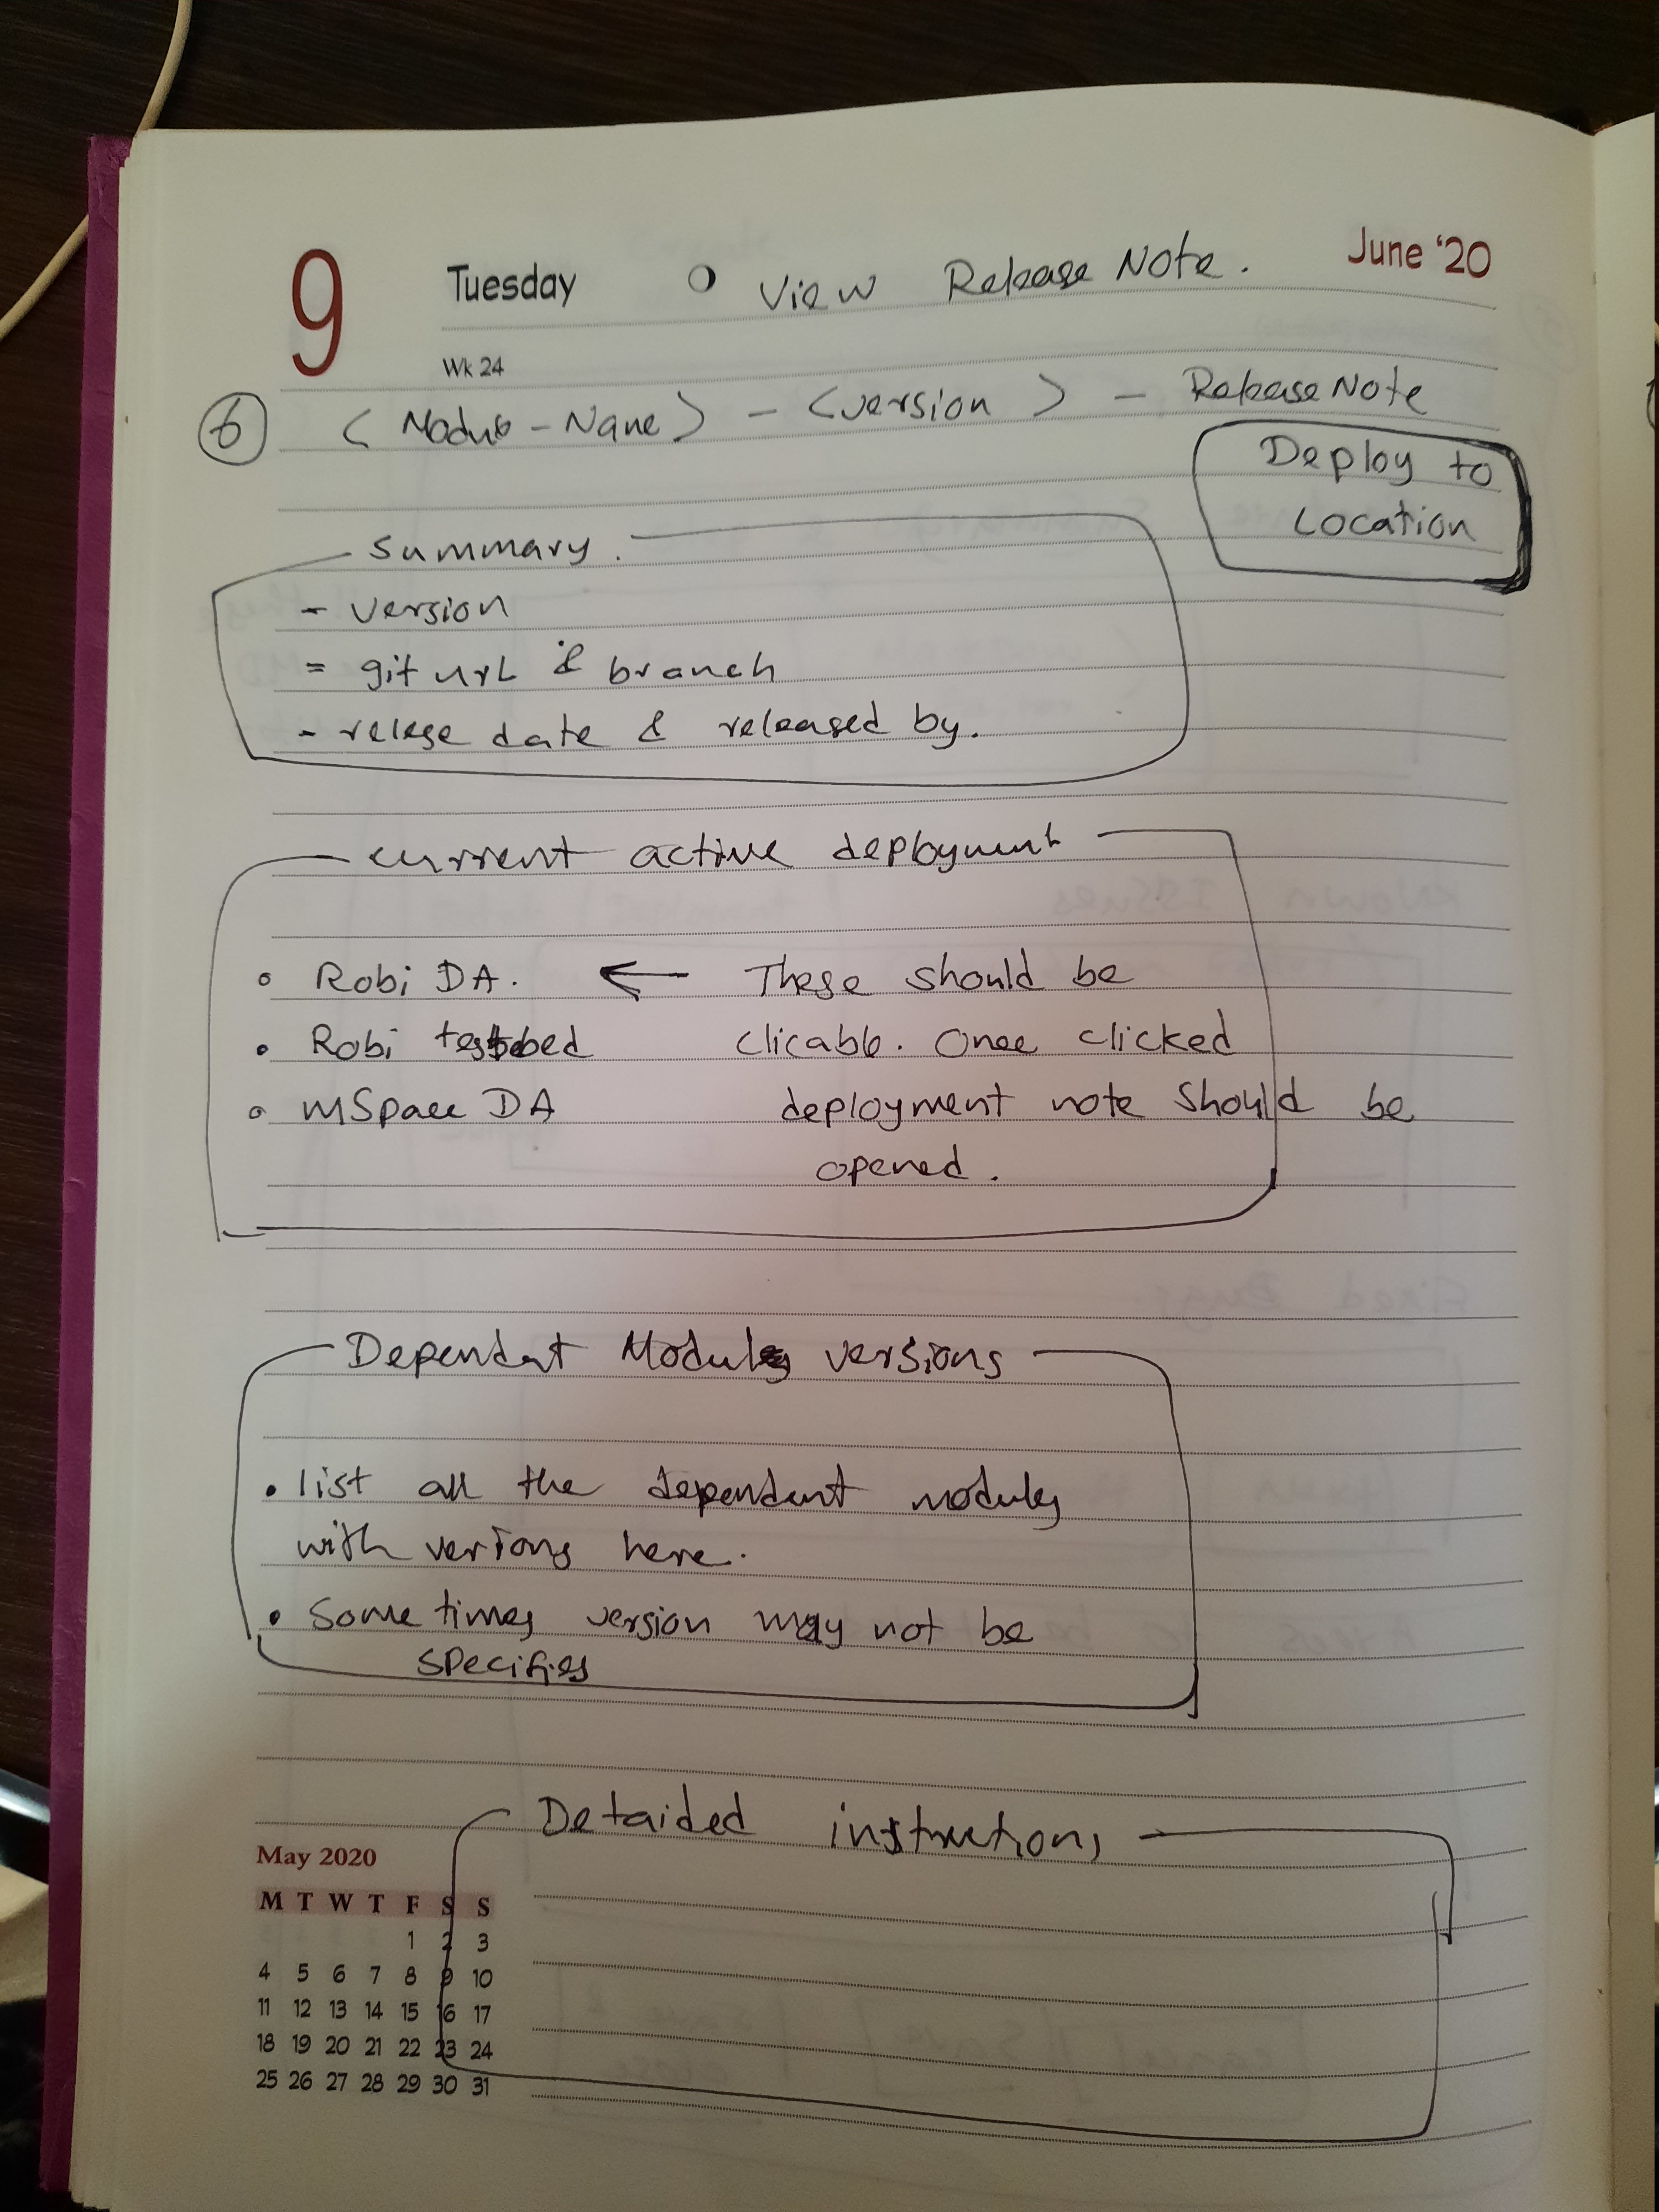 9 Tuesday View Release Note. June '20
Wk 24
6 < Module-Name > - < version > - Release Note
Deploy to
Location
summary.
- version
- git url & branch
- relese date & released by.
current active deployment
Robi DA. ← These should be
Robi testbed clicable. Once clicked
mSpace DA deployment note should be
opened.
Dependent Modules versions
• list all the dependent modules
with verions here.
• Some times version may not be
specifies
Detaided instructions
May 2020
M T W T F S S
1 2 3
4 5 6 7 8 9 10
11 12 13 14 15 16 17
18 19 20 21 22 23 24
25 26 27 28 29 30 31